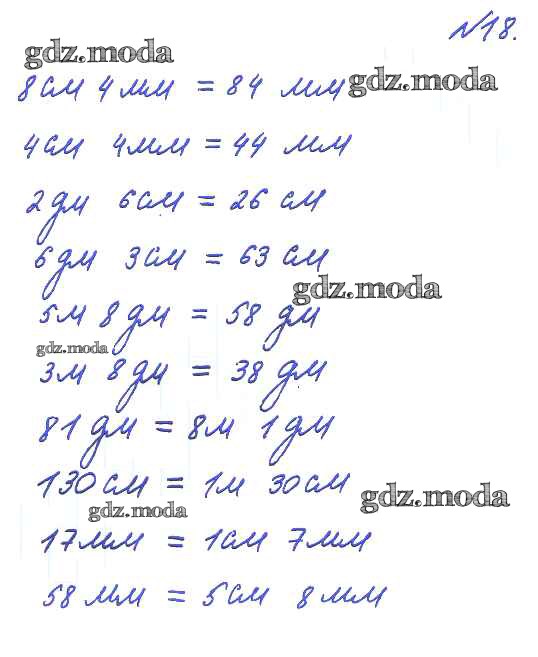 №18.
gdz.moda
8см 4мм = 84 мм gdz.moda
4см 4мм = 44 мм
2дм 6см = 26 см
6дм 3см = 63 см
gdz.moda
5м 8дм = 58 дм
gdz.moda
3м 8дм = 38 дм
81дм = 8м 1дм
130см = 1м 30см
gdz.moda gdz.moda
17мм = 1см 7мм
58мм = 5см 8мм